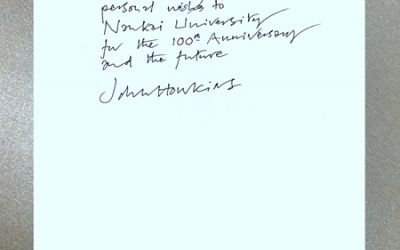 personal wishes to
Nankai University
for the 100th Anniversary
and the future
John Howkins